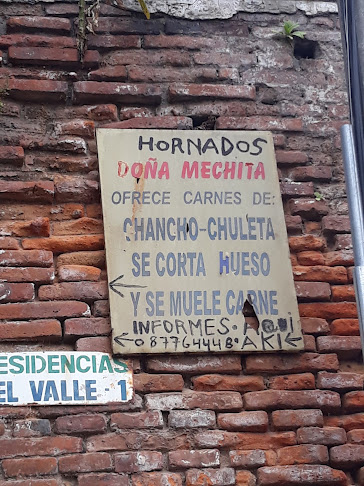 HORNADOS
DOÑA MECHITA
OFRECE CARNES DE:
CHANCHO-CHULETA
SE CORTA HUESO
Y SE MUELE CARNE
INFORMES. AQUÍ
AKI
ESIDENCIAS
EL VALLE 1